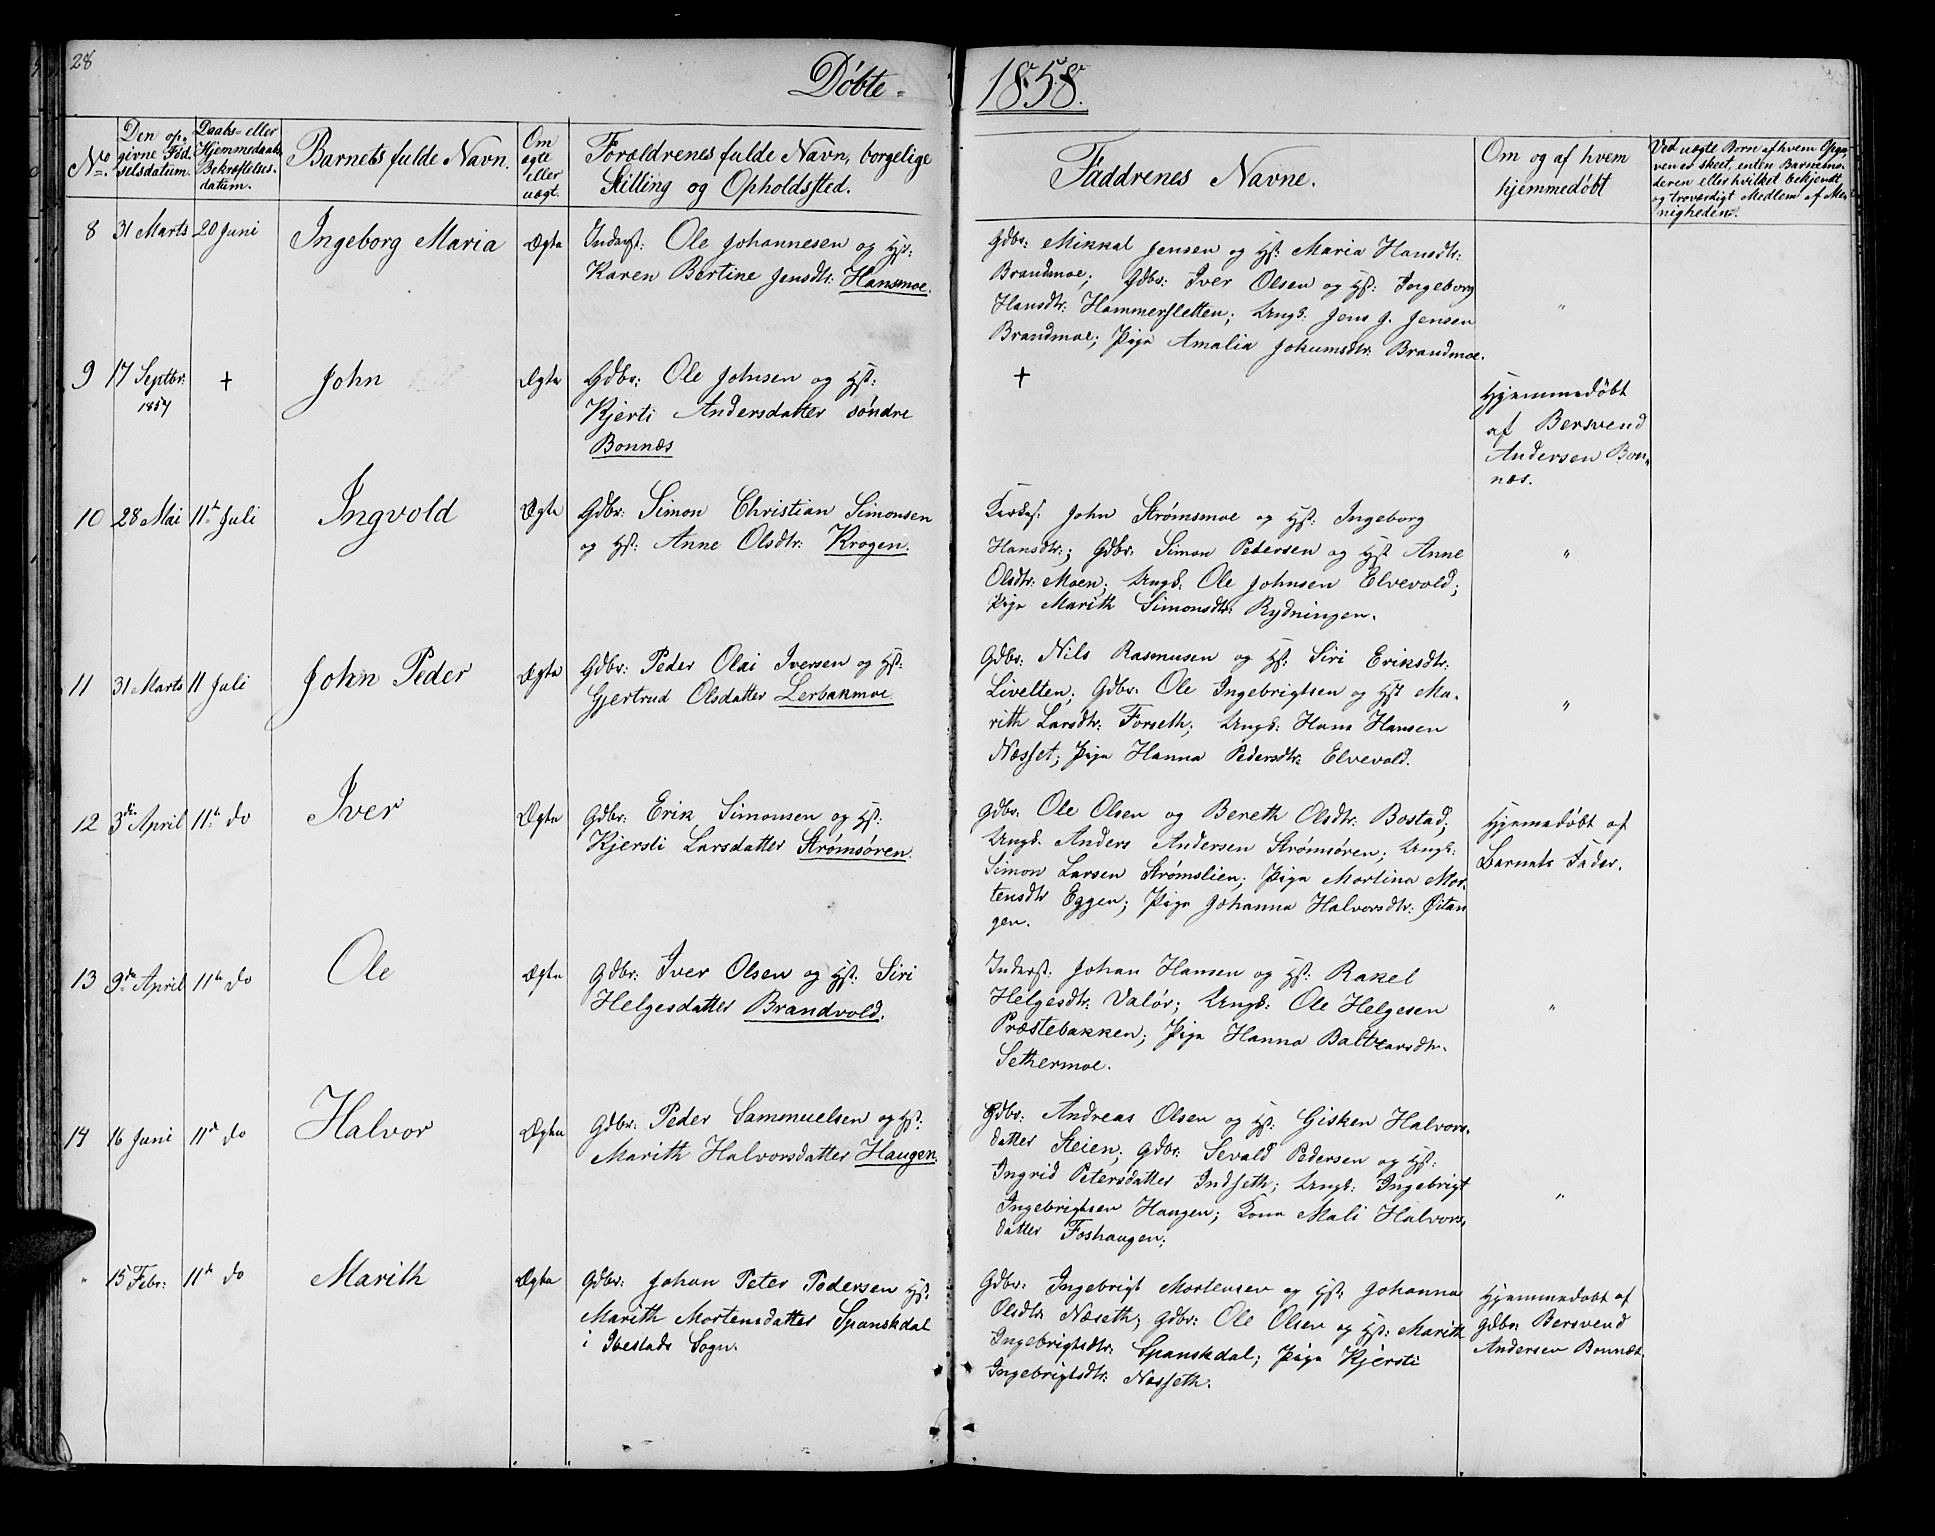 28
Døbte
1858.
No.
Den op-
givne Fød-
selsdatum.
Daabs- eller
Hjemmedaabs
Bekræftelses-
datum.
Barnets fulde Navn.
Om
ægte
eller
uægt.
Forældrenes fulde Navn, borgelige
Stilling og Opholdssted.
Faddrenes Navne.
Om og af hvem
hjemmedøbt
Ved uægte Børn af hvem Opga-
ven er skeet, enten Barnemo-
deren eller hvilket bekjendt
og troværdigt Medlem af Me-
nigheden.
8 31 Marts 20 Juni Ingeborg Maria Ægte
Inderst: Ole Johannesen og Hst:
Karen Bertine Jensdtr: Hansmoe.
Gdbr: Mikkal Jensen og Hst: Maria Hansdtr:
Brandmoe; Gdbr: Iver Olsen og Hst: Ingeborg
Hansdtr: Hammersletten; Ungk: Jens J. Jensen
Brandmoe; Pige Amalia Jokumsdtr: Brandmoe.
"
9 17 Septbr: 1857 + John Ægte
Gdbr: Ole Johnsen og Hst:
Kjerti Andersdatter søndre
Bonnæs
+
Hjemmedøbt
af Bersvend
Andersen Bon-
næs.
10 28 Mai 11te Juli Ingvold Ægte
Gdbr: Simon Christian Simonsen
og Hst: Anne Olsdtr: Krogen.
John Strømsmoe og Hst: Ingeborg
Hansdtr:; Gdbr: Simon Pedersen og Hst Anne
Olsdtr: Moen; Ungk: Ole Johnsen Elvevold;
Pige Marith Simonsdtr: Rydningen.
"
11 31 Marts 11 Juli John Peder Ægte
Gdbr: Peder Olai Iversen og Hst:
Gjertrud Olsdatter Lerbakmoe
Gdbr: Nils Rasmusen og Hst: Siri Eriksdtr:
Livelten; Gdbr: Ole Ingebrigtsen og Hst Ma-
rith Larsdtr: Forseth; Ungk: Hans Hansen
Næsset; Pige Hanna Pedersdtr: Elvevold.
"
12 3die April 11te do Iver Ægte
Gdbr: Erik Simonsen og Hst:
Kjersti Larsdatter Strømsøren.
Gdbr: Ole Olsen og Bereth Olsdtr: Bostad;
Ungk. Anders Andersen Strømsøren; Ungk:
Simon Larsen Strømslien; Pige Martina Mor-
tensdtr Eggen; Pige Johanna Halvorsdtr: Øitan
gen.
Hjemedøbt af
Barnets Fader.
13 9de April 11te do Ole Ægte
Gdbr: Iver Olsen og Hst: Siri
Helgesdatter Brandvold.
Inderst: Johan Hansen og Hst: Rakel
Helgesdtr: Valør; Ungk: Ole Helgesen
Præstebakken; Pige Hanna Baltzarsdtr.
Sethermoe.
"
14 16 Juni 11te do Halvor Ægte
Gdbr: Peder Sammuelsen og Hst:
Marith Halvorsdatter Haugen.
Gdbr: Andreas Olsen og Hst: Gisken Halvors-
datter Steien; Gdbr: Sevald Pedersen og Hst:
Ingrid Petersdatter Indseth; Ungk: Ingebrigt
Ingebrigtsen Haugen; Kone Mali Halvors-
datter Foshaugen;
"
" 15 Febr: 11te do Marith Ægte
Gdbr: Johan Peter Pedersen Hst:
Marith Mortensdatter Spanskdal
i Ibestads Sogn.
Gdbr: Ingebrigt Mortensen og Hst: Johanna
Olsdtr: Næseth; Gdbr: Ole Olsen og Hst: Marith
Ingebrigtsdtr: Spanskdal; Pige Kjersti
Ingebrigtsdtr: Næsseth.
Hjemmedøbt af
Gdbr: Bersvend
Andersen Bonnæs.